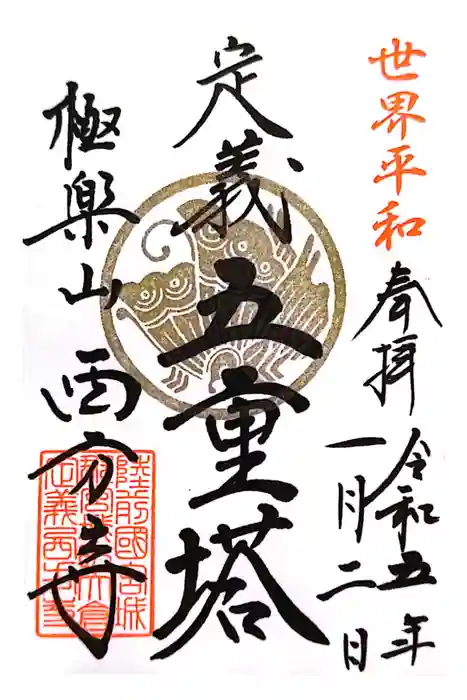 世界平和
奉拝
令和五年
一月二日
定義
五重塔
極楽山
西方寺
陸前國宮城
定義西方寺